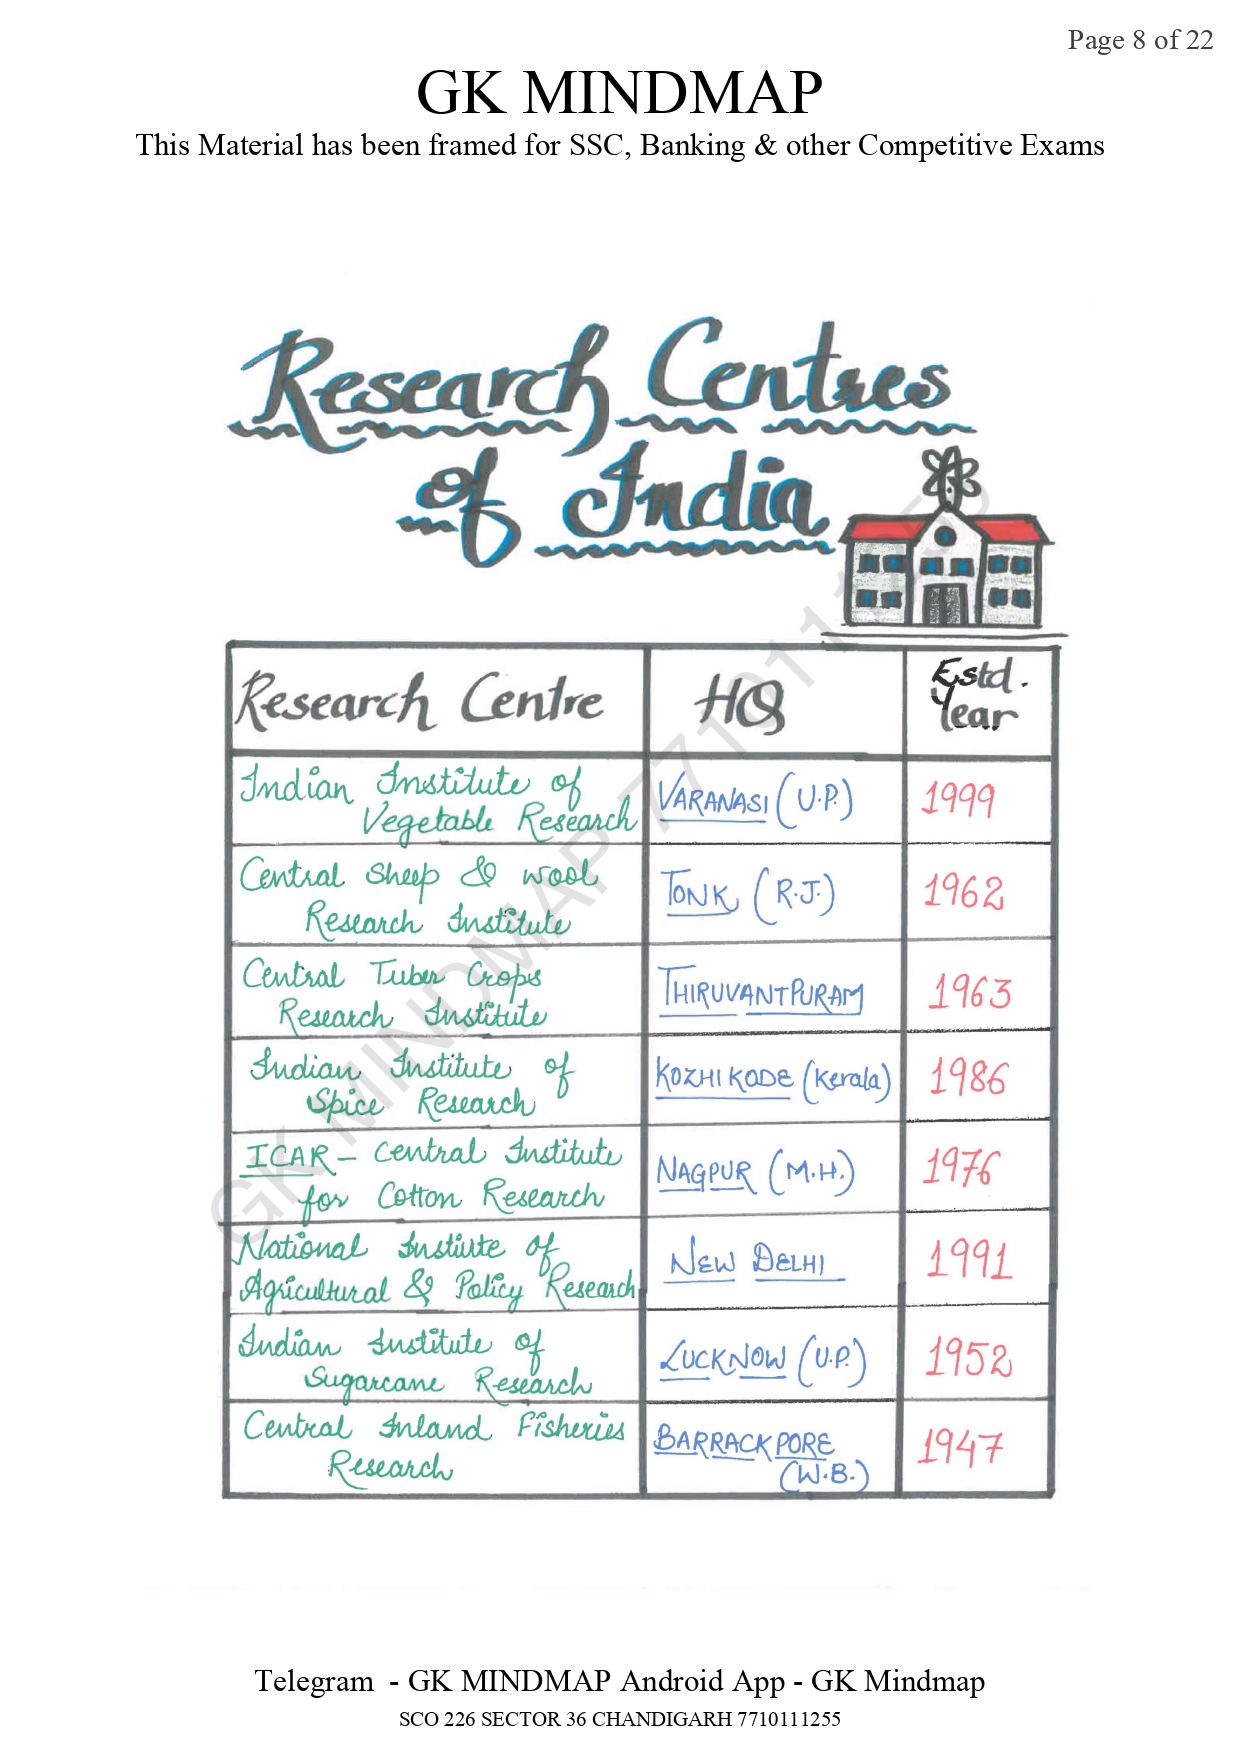 Page 8 of 22
GK MINDMAP
This Material has been framed for SSC, Banking & other Competitive Exams
Research Centres
of India
Research Centre
HQ
Estd.
Year
Indian Institute of
Vegetable Research
VARANASI (U.P.)
1999
Central Sheep & Wool
Research Institute
TONK (R.J.)
1962
Central Tuber Crops
Research Institute
THIRUVANTPURAM
1963
Indian Institute of
Spice Research
KOZHIKODE (Kerala)
1986
ICAR - Central Institute
for Cotton Research
NAGPUR (M.H.)
1976
National Instiute of
Agricultural & Policy Research
NEW DELHI
1991
Indian Institute of
Sugarcane Research
LUCKNOW (U.P.)
1952
Central Inland Fisheries
Research
BARRACKPORE
(W.B.)
1947
GK MINDMAP 7710111255
Telegram - GK MINDMAP Android App - GK Mindmap
SCO 226 SECTOR 36 CHANDIGARH 7710111255